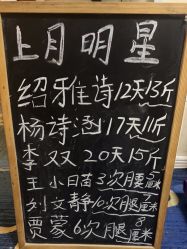 上月明星
绍雅诗12天13斤
杨诗涵17天11斤
李双20天15斤
王小苗3次腰5厘米
刘文静10次腿7厘米
贾蒙6次腿厘米